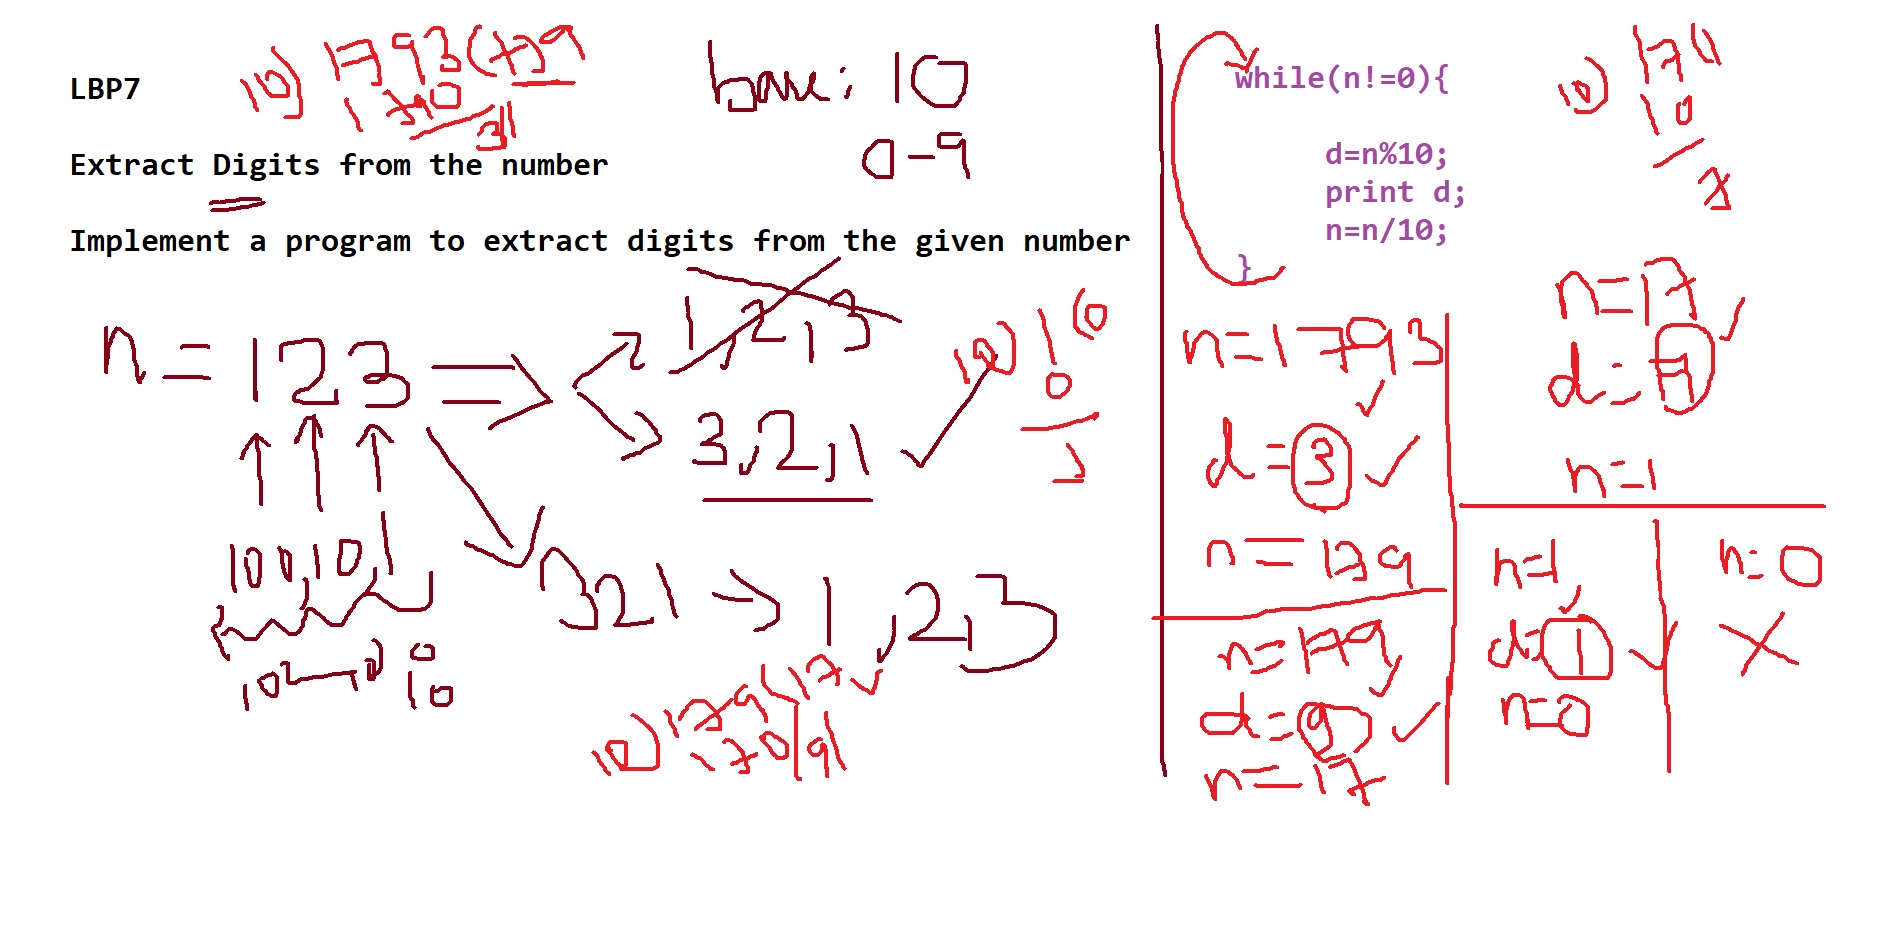 LBP7
10) 1793 (179
1790
3
base: 10
0-9
Extract Digits from the number
Implement a program to extract digits from the given number
n = 123
1,2,3
3,2,1
100,10,1
321 → 1,2,3
10) 179 (17
170
9
while(n!=0){
d=n%10;
print d;
n=n/10;
}
10) 17 (1
10
7
10) 1 (0
0
1
n=1793
d=3
n=179
n=179
d=9
n=17
n=17
d=7
n=1
n=1,
d=1
n=0
n=0